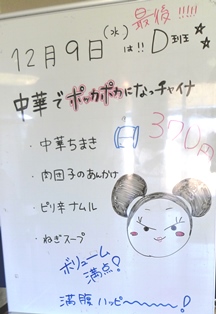 最後!!!!!
12月9日(水)は!! D班
中華でポッカポカになっチャイナ
・中華ちまき
370円
・肉団子のあんかけ
・ピリ辛ナムル
・ねぎスープ
ボリューム満点!
満腹ハッピ〜〜〜!